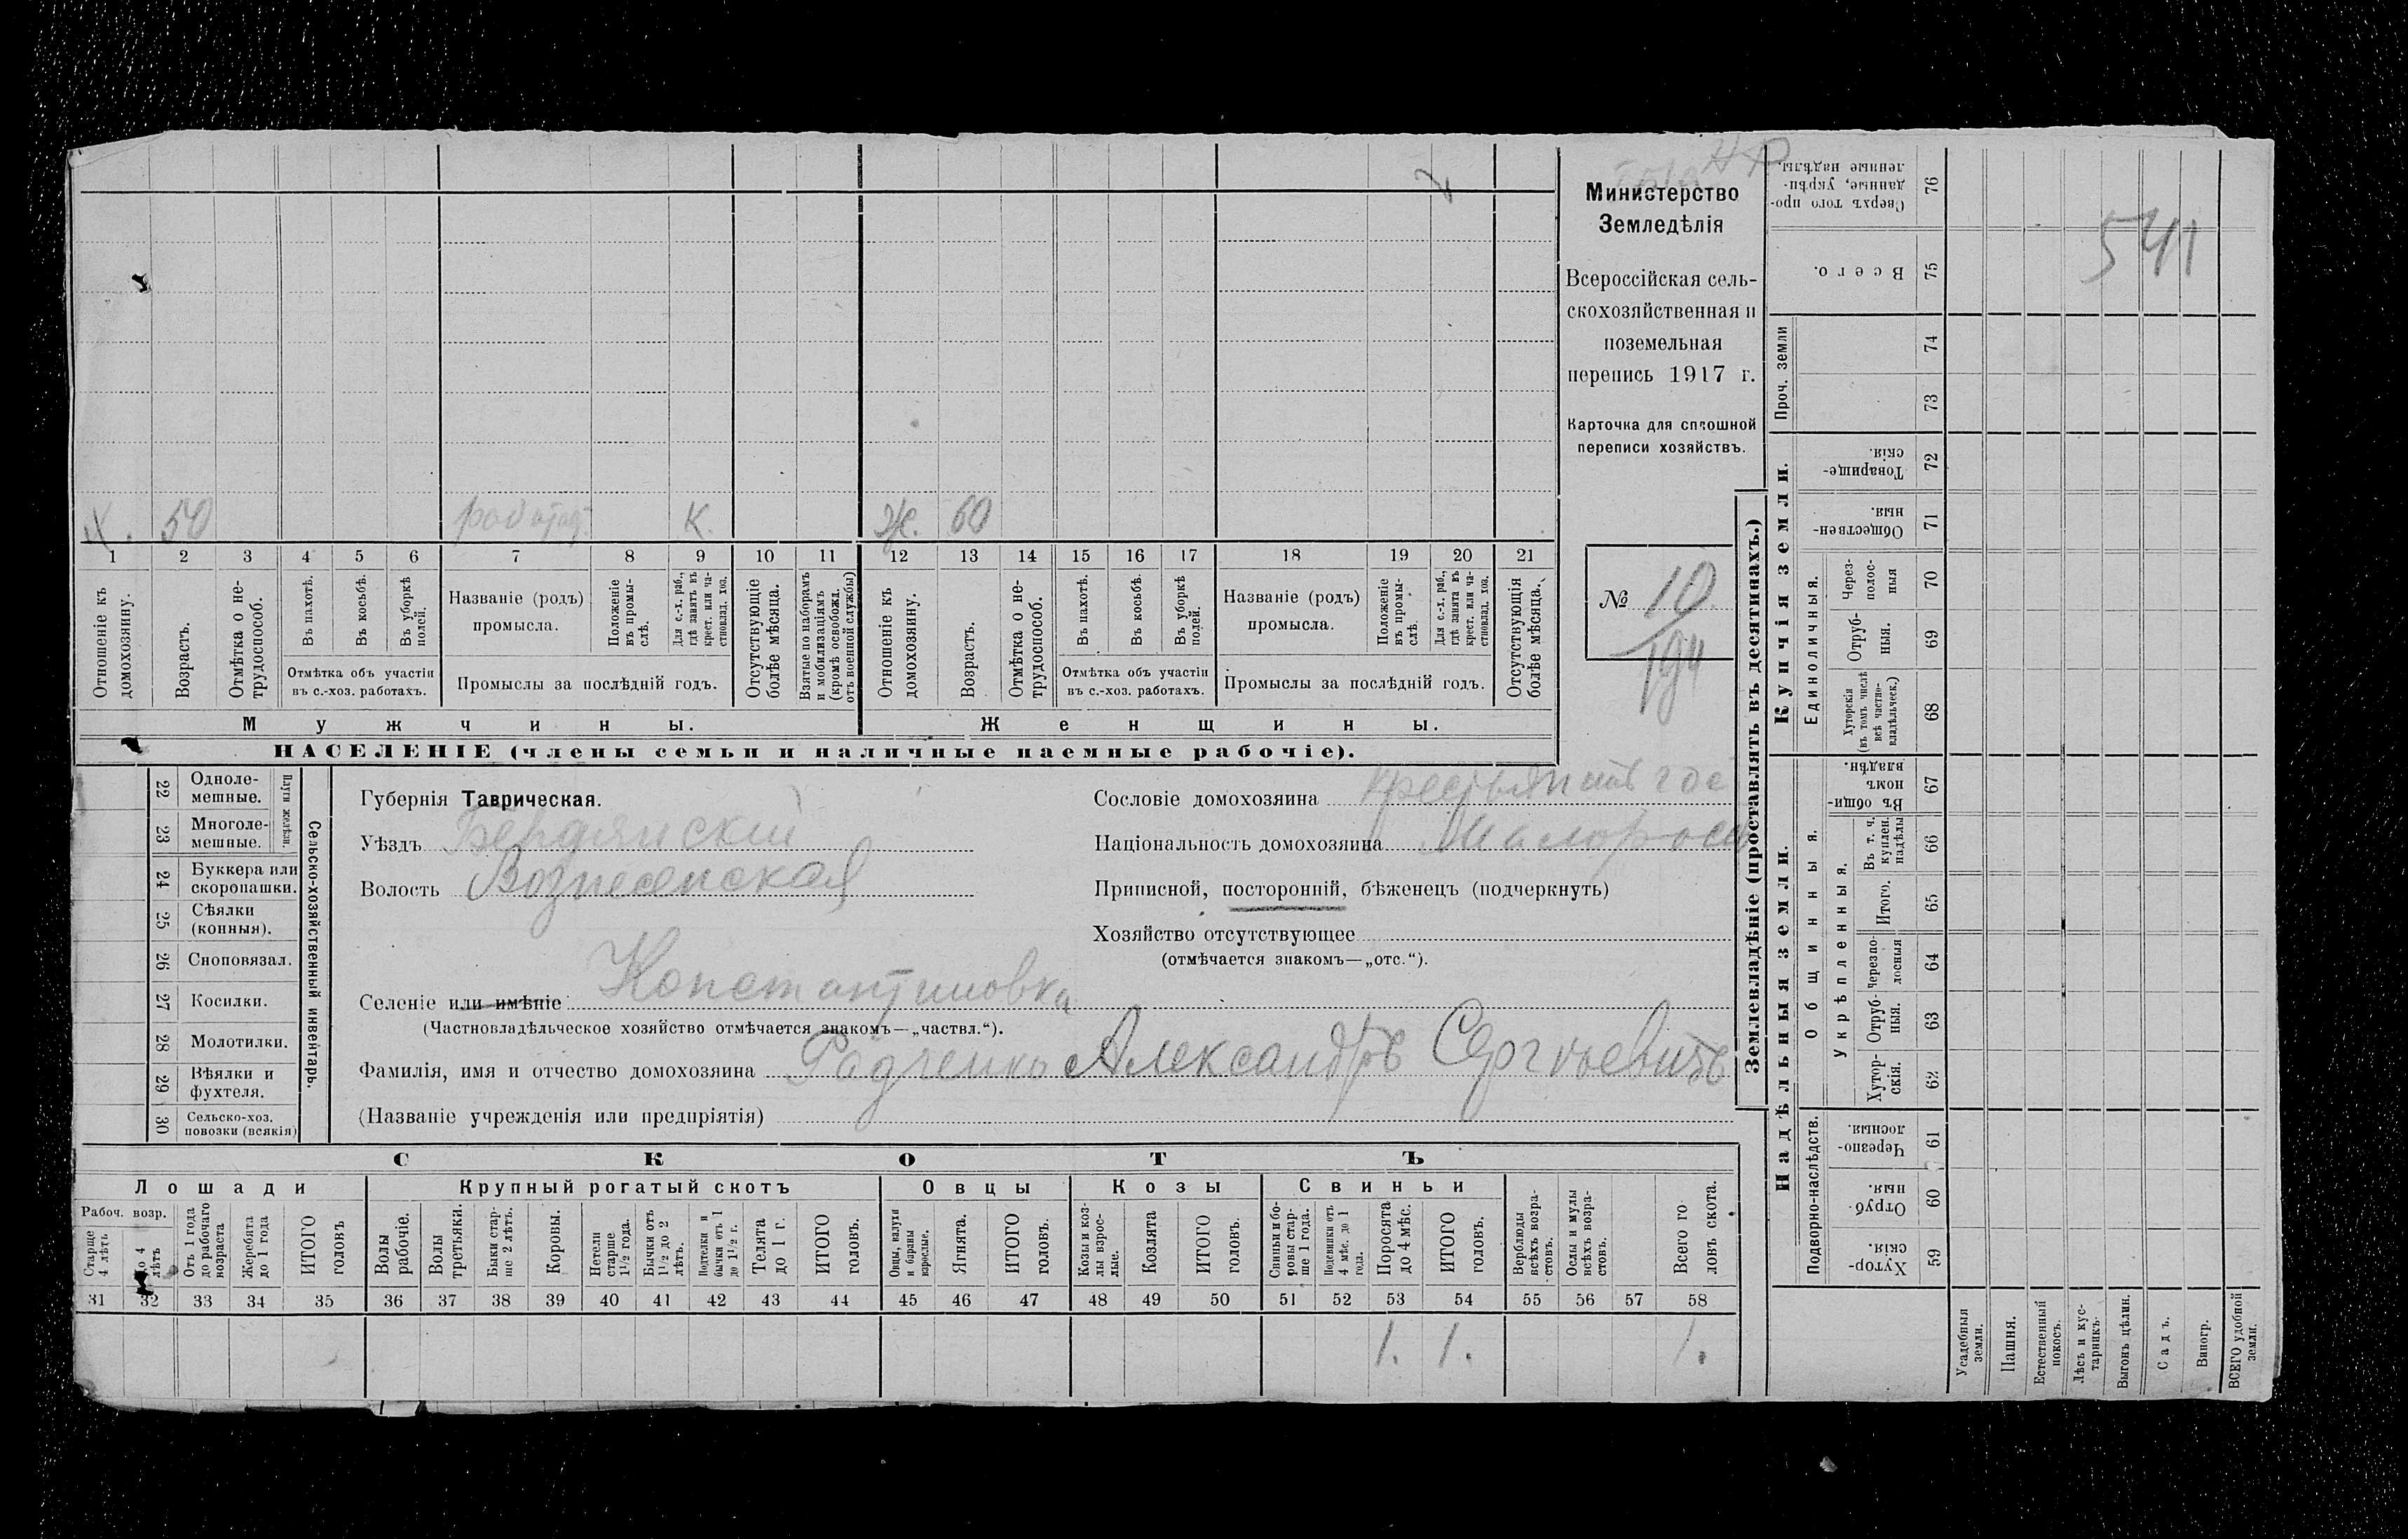 Министерство
Земледѣлія
Всероссійская сель-
скохозяйственная и
поземельная
перепись 1917 г.
Карточка для сплошной
переписи хозяйствъ.
№ 10
194
541
Х. 50 К. Ж. 60
1 2 3 4 5 6 7 8 9 10 11 12 13 14 15 16 17 18 19 20 21
Отношеніе къ домохозяину.
Возрастъ.
Отмѣтка о не-трудоспособ.
Въ пахотѣ.
Въ косьбѣ.
Въ уборкѣ полей.
Отмѣтка объ участіи
въ с.-хоз. работахъ.
Названіе (родъ)
промысла.
Положеніе въ промы-слѣ.
Для с.-х. раб., гдѣ занятъ въ крест. или ча-стновлад. хоз.
Промыслы за послѣдній годъ.
Отсутствующіе болѣе мѣсяца.
Взятые по наборамъ и мобилизаціямъ (кромѣ освобожд. отъ военной службы)
Отношеніе къ домохозяину.
Возрастъ.
Отмѣтка о не-трудоспособ.
Въ пахотѣ.
Въ косьбѣ.
Въ уборкѣ полей.
Отмѣтка объ участіи
въ с.-хоз. работахъ.
Названіе (родъ)
промысла.
Положеніе въ промы-слѣ.
Для с.-х. раб., гдѣ занята въ крест. или ча-стновлад. хоз.
Промыслы за послѣдній годъ.
Отсутствующія болѣе мѣсяца.
Мужчины. Женщины.
НАСЕЛЕНІЕ (члены семьи и наличные наемные рабочіе).
22 Одноле-мешные.
23 Многоле-мешные.
Плуги желѣзн.
24 Буккера или скоропашки.
25 Сѣялки (конныя).
26 Сноповязал.
27 Косилки.
28 Молотилки.
29 Вѣялки и фухтеля.
30 Сельско-хоз. повозки (всякія)
Сельско-хозяйственный инвентарь.
Губернія Таврическая.
Уѣздъ Бердянскій
Волость Вознесенская
Сословіе домохозяина крестьянинъ
Національность домохозяина Малоросс
Приписной, посторонній, бѣженецъ (подчеркнуть)
Хозяйство отсутствующее
(отмѣчается знакомъ—„отс.“).
Селеніе или имѣніе Константиновка
(Частновладѣльческое хозяйство отмѣчается знакомъ—„частвл.“).
Фамилія, имя и отчество домохозяина Радченко Александръ Сергѣевичъ
(Названіе учрежденія или предпріятія)
СКОТЪ
Лошади Крупный рогатый скотъ Овцы Козы Свиньи
Рабоч. возр.
Старше 4 лѣтъ
До 4 лѣтъ
Отъ 1 года до рабочаго возраста
Жеребята до 1 года
ИТОГО головъ
Волы рабочіе.
Волы третьяки.
Быки стар-ше 2 лѣтъ.
Коровы.
Нетели старше 1½ года.
Бычки отъ 1½ до 2 лѣтъ.
Подтелки и бычки отъ 1 до 1½ г.
Телята до 1 г.
ИТОГО головъ.
Овцы, валухи и бараны взрослые.
Ягнята.
ИТОГО головъ.
Козы и коз-лы взрос-лые.
Козлята
ИТОГО головъ.
Свиньи и бо-ровы стар-ше 1 года.
Подсвинки отъ 4 мѣс. до 1 года.
Поросята до 4 мѣс.
ИТОГО головъ.
Верблюды всѣхъ возра-стовъ.
Ослы и мулы всѣхъ возра-стовъ.
Всего го-ловъ скота.
31 32 33 34 35 36 37 38 39 40 41 42 43 44 45 46 47 48 49 50 51 52 53 54 55 56 57 58
1. 1. 1.
Землевладѣніе (проставлять въ десятинахъ.)
Купчія земли.
Надѣльныя земли.
Сверхъ того про-данные, укрѣп-ленные надѣлы. 76
Всего. 75
Проч. земли
74
73
Товарище-скія. 72
Обществен-ныя. 71
Единоличныя.
Через-полос-ныя 70
Отруб-ныя. 69
Хуторскія (въ томъ числѣ всѣ частно-владѣльческ.) 68
Общинныя.
Въ общин-номъ владѣн. 67
Укрѣпленныя.
Въ т. ч. куплен. надѣлы 66
Итого. 65
Черезпо-лосныя 64
Отруб-ныя. 63
Хутор-скія. 62
Подворно-наслѣдств.
Черезпо-лосныя. 61
Отруб-ныя. 60
Хутор-скія. 59
Усадебныя земли.
Пашня.
Естественный покосъ.
Лѣсъ и кус-тарникъ.
Выгонъ цѣлин.
Садъ.
Виногр.
ВСЕГО удобной земли.